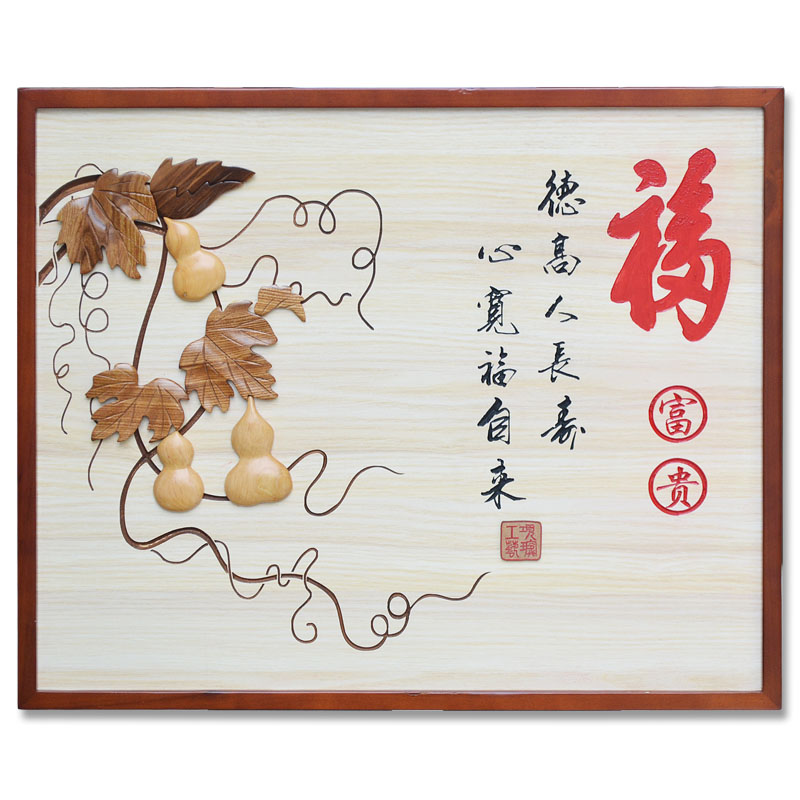 福
富
贵
德高人長寿
心寬福自来